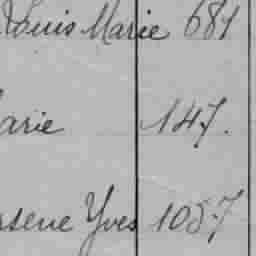 Louis Marie 681
arie 147.
sene Yves 1057